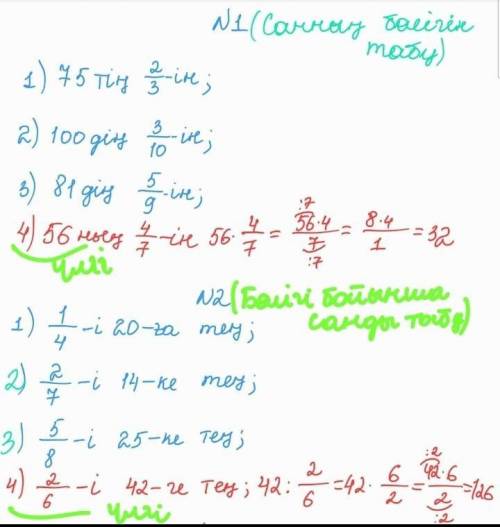 N1 (Санның бөлігін
табу)
1) 75 тің 2/3-ін;
2) 100 дің 3/10-ін;
3) 81 дің 5/9-ін;
4) 56 ның 4/7-ін 56·4/7 = :7 56·4/7 :7 = 8·4/1 = 32
үлгі
N2 (Бөлігі бойынша
санды табу)
1) 1/4-і 20-ға тең;
2) 2/7-і 14-ке тең;
3) 5/8-і 25-ке тең;
4) 2/6-і 42-ге тең; 42:2/6 = 42·6/2 = :2 42·6/2 :2 = 126
үлгі